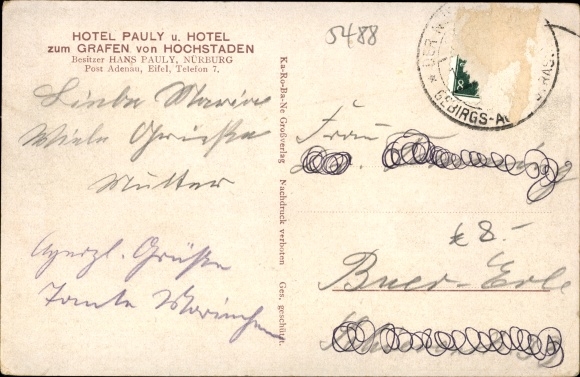 HOTEL PAULY u. HOTEL
zum GRAFEN von HOCHSTADEN
Besitzer HANS PAULY, NÜRBURG
Post Adenau, Eifel, Telefon 7.
Liebe Maria
Viele Grüße
Mutter
Herzl. Grüße
Tante Mariechen
Ka-Ro-Ba-Ne Großverlag Nachdruck verboten Ges. geschützt.
5488
DER N
GEBIRGS-A
STRAS
8
Frau
€ 8.-
Buer-Erle